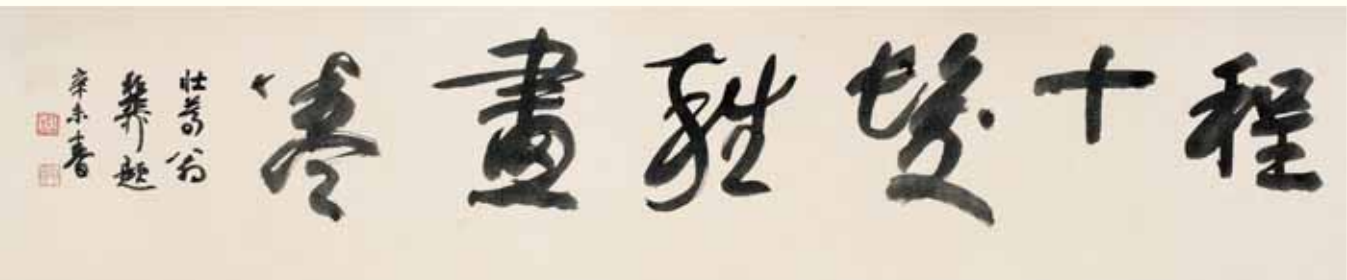 程十髮雜畫卷
壯暮翁
稚柳題
辛未春